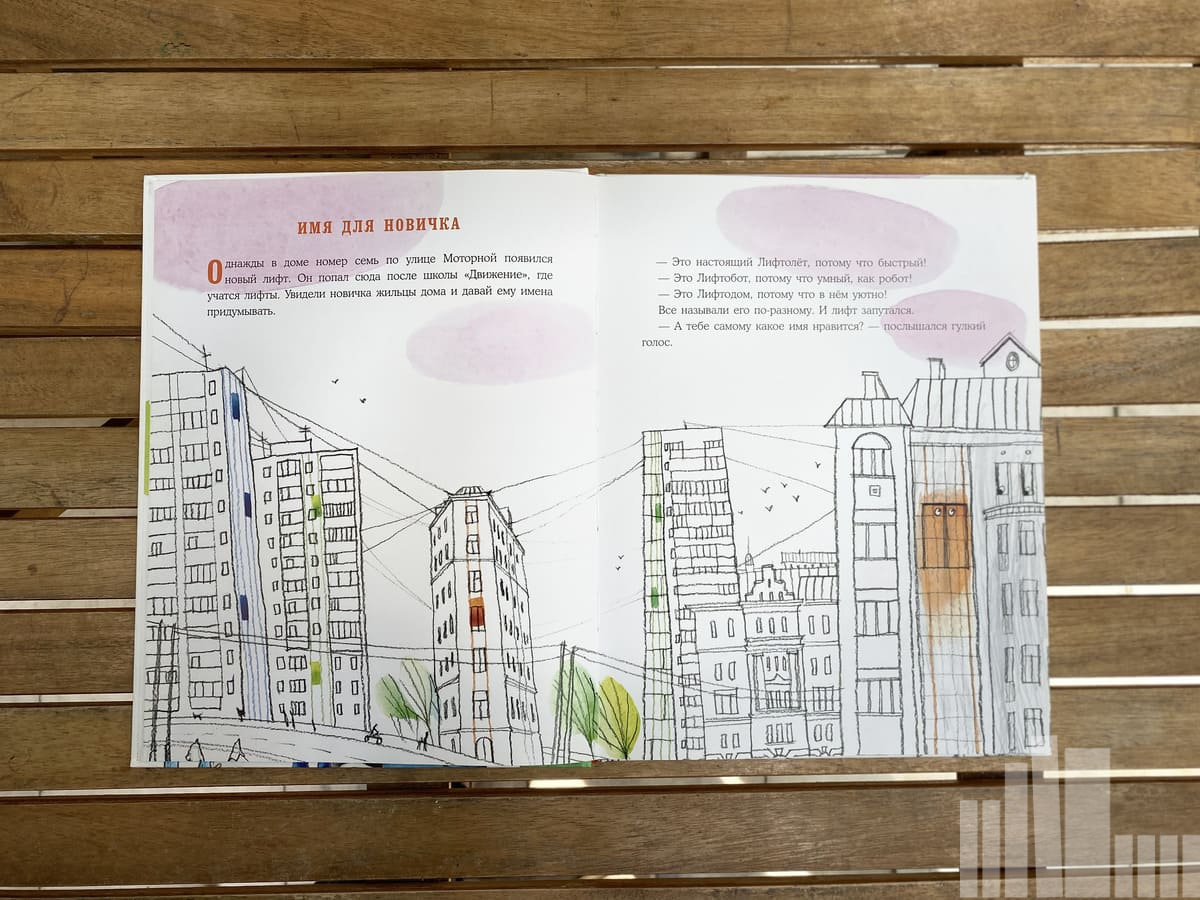 ИМЯ ДЛЯ НОВИЧКА
Однажды в доме номер семь по улице Моторной появился
новый лифт. Он попал сюда после школы «Движение», где
учатся лифты. Увидели новичка жильцы дома и давай ему имена
придумывать.
— Это настоящий Лифтолёт, потому что быстрый!
— Это Лифтобот, потому что умный, как робот!
— Это Лифтодом, потому что в нём уютно!
Все называли его по-разному. И лифт запутался.
— А тебе самому какое имя нравится? — послышался гулкий
голос.